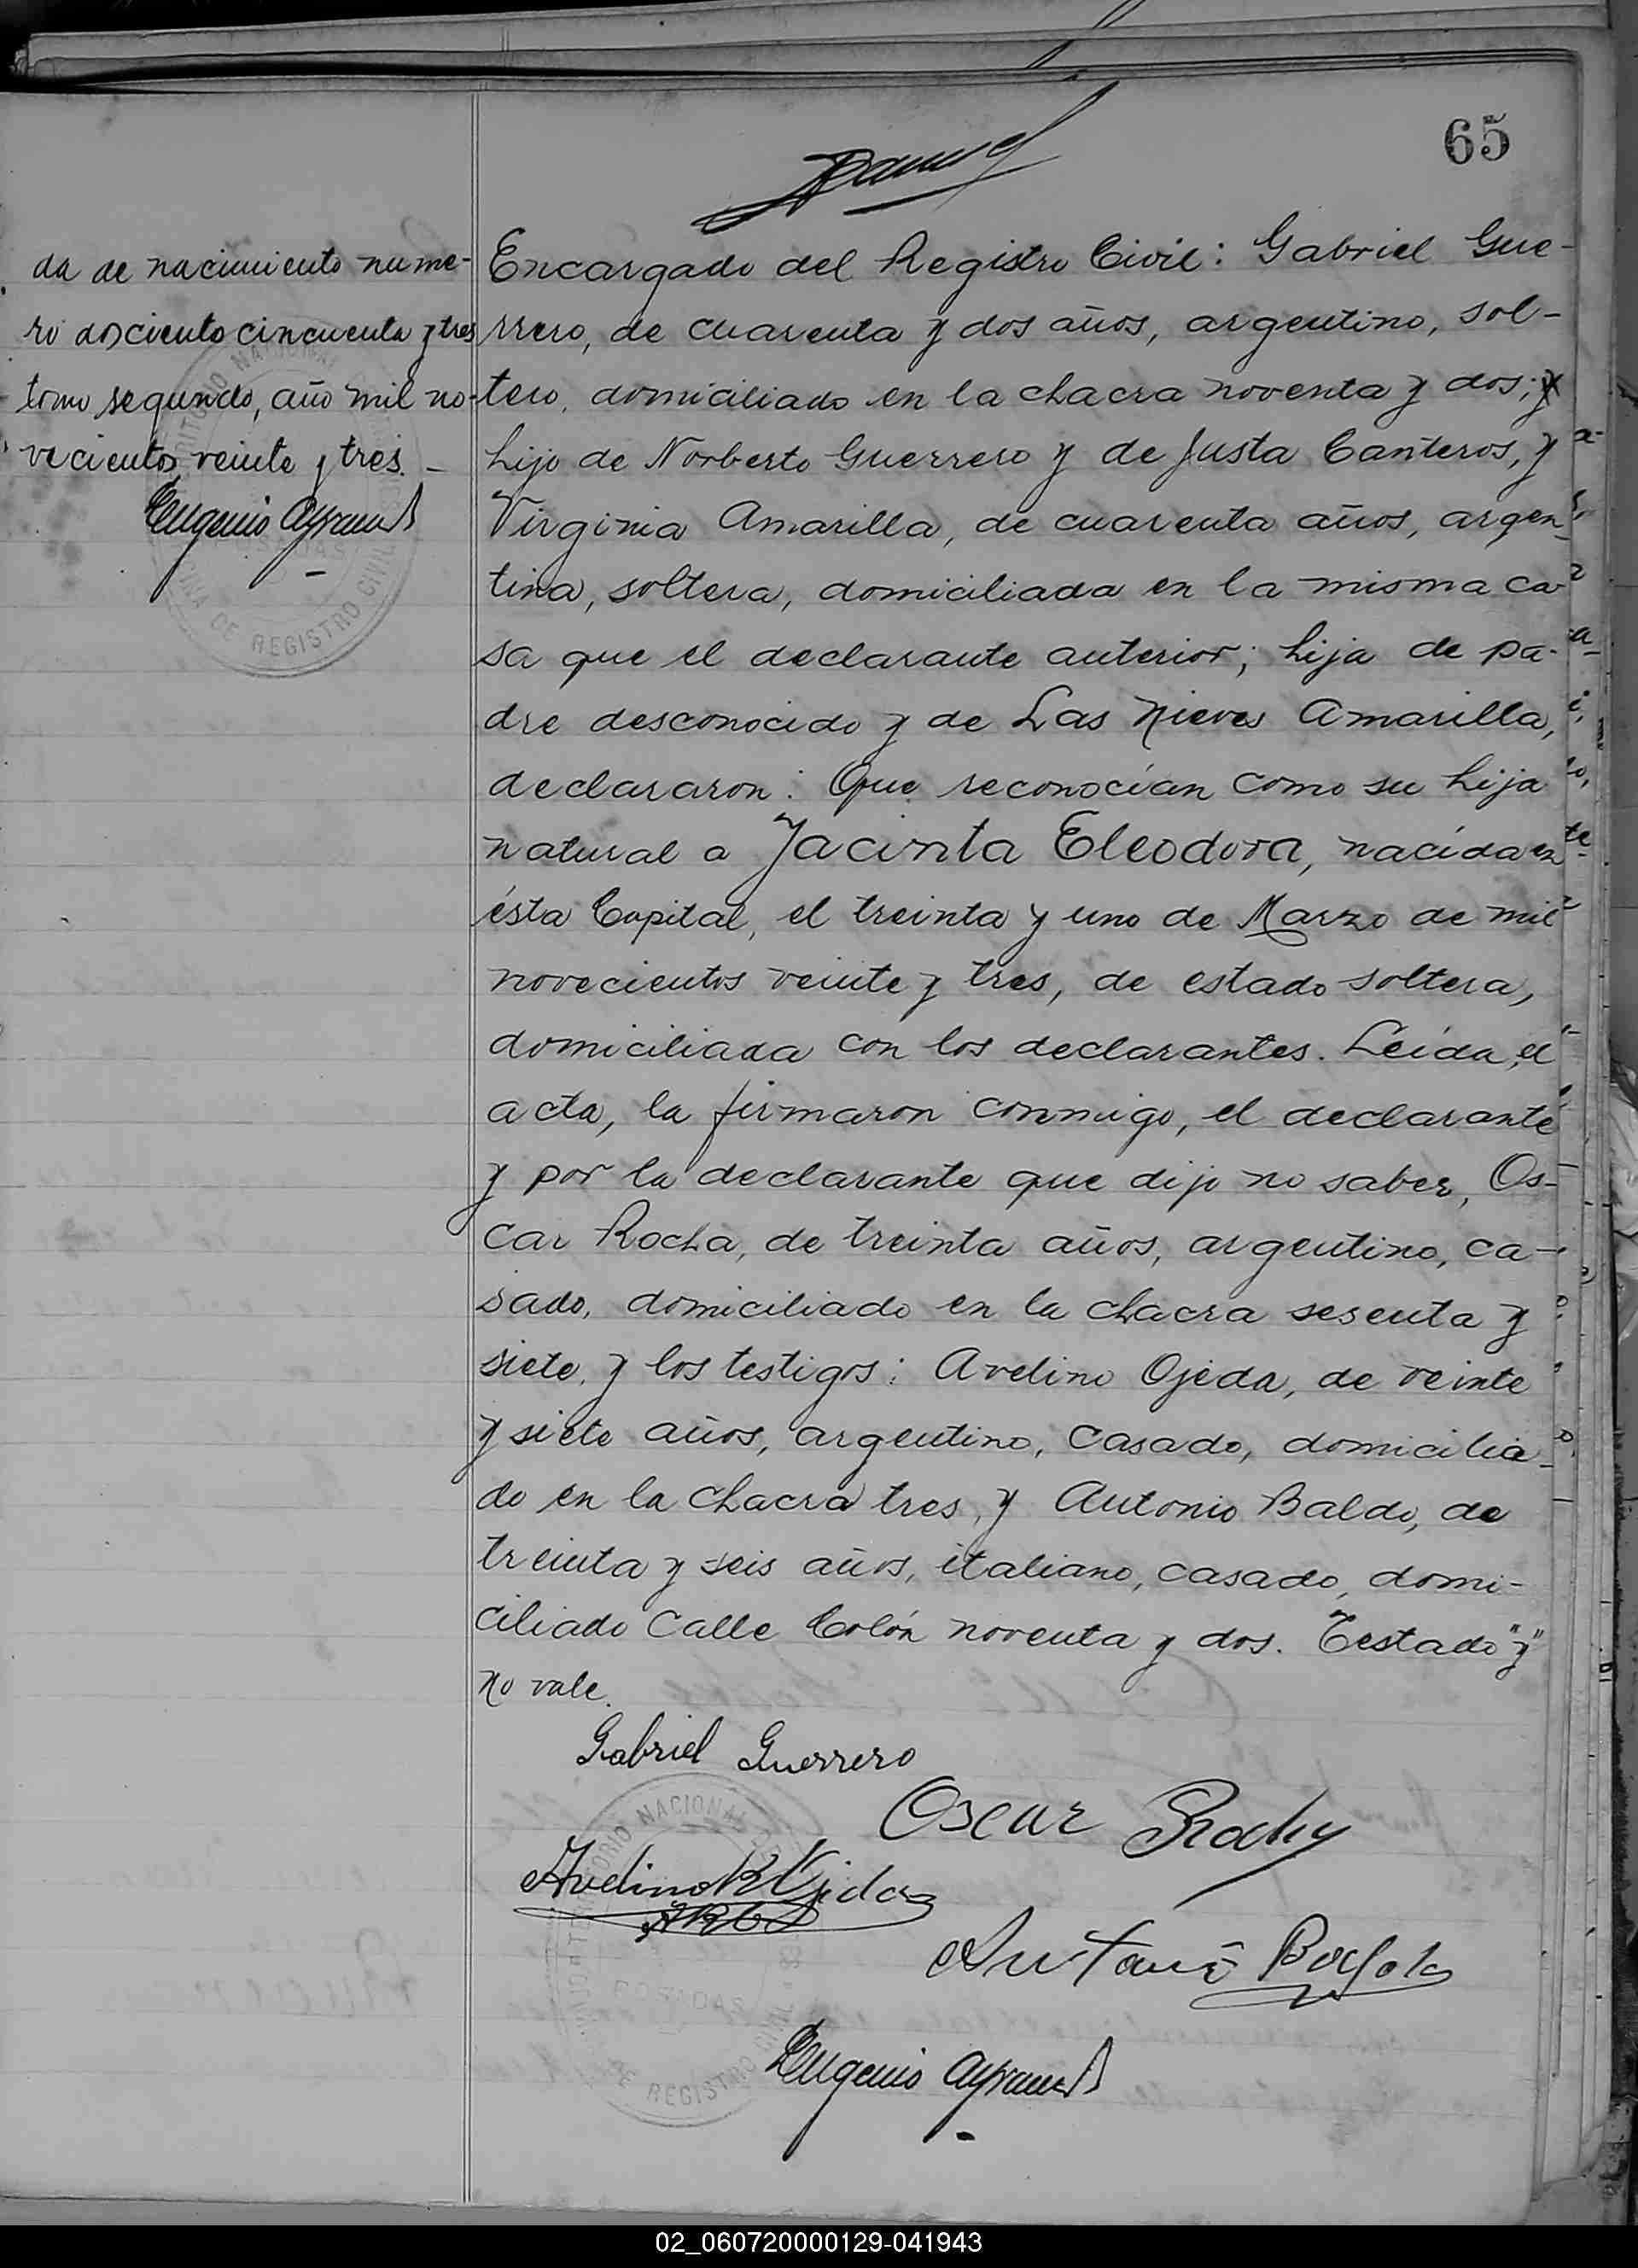 65
da de nacimiento nume-
ro dosciento cincuenta y tres
tomo segundo, año mil no-
vecientos veinte y tres. -
Eugenio
REGISTRO CIVIL
Encargado del Registro Civil: Gabriel Gue-
rrero, de cuarenta y dos años, argentino, sol-
tero, domiciliado en la chacra noventa y dos; y
hijo de Norberto Guerrero y de Justa Canteros, y
Virginia Amarilla, de cuarenta años, argen-
tina, soltera, domiciliada en la misma ca-
sa que el declarante anterior; hija de pa-
dre desconocido y de Las Nieves Amarilla,
declararon: Que reconocían como su hija
natural a Jacinta Eleodora, nacida en
ésta Capital, el treinta y uno de Marzo de mil
novecientos veinte y tres, de estado soltera,
domiciliada con los declarantes. Leída el
acta, la firmaron conmigo, el declarante
y por la declarante que dijo no saber, Os-
car Rocha, de treinta años, argentino, ca-
sado, domiciliado en la chacra sesenta y
siete, y los testigos: Avelino Ojeda, de veinte
y siete años, argentino, casado, domicilia-
do en la chacra tres, y Antonio Baldo, de
treinta y seis años, italiano, casado, domi-
ciliado Calle Colón noventa y dos. Testado "y"
no vale.
Gabriel Guerrero
Oscar
Avelino R Ojeda
POSADAS
DE REGISTRO CIVIL
Eugenio
02_060720000129-041943